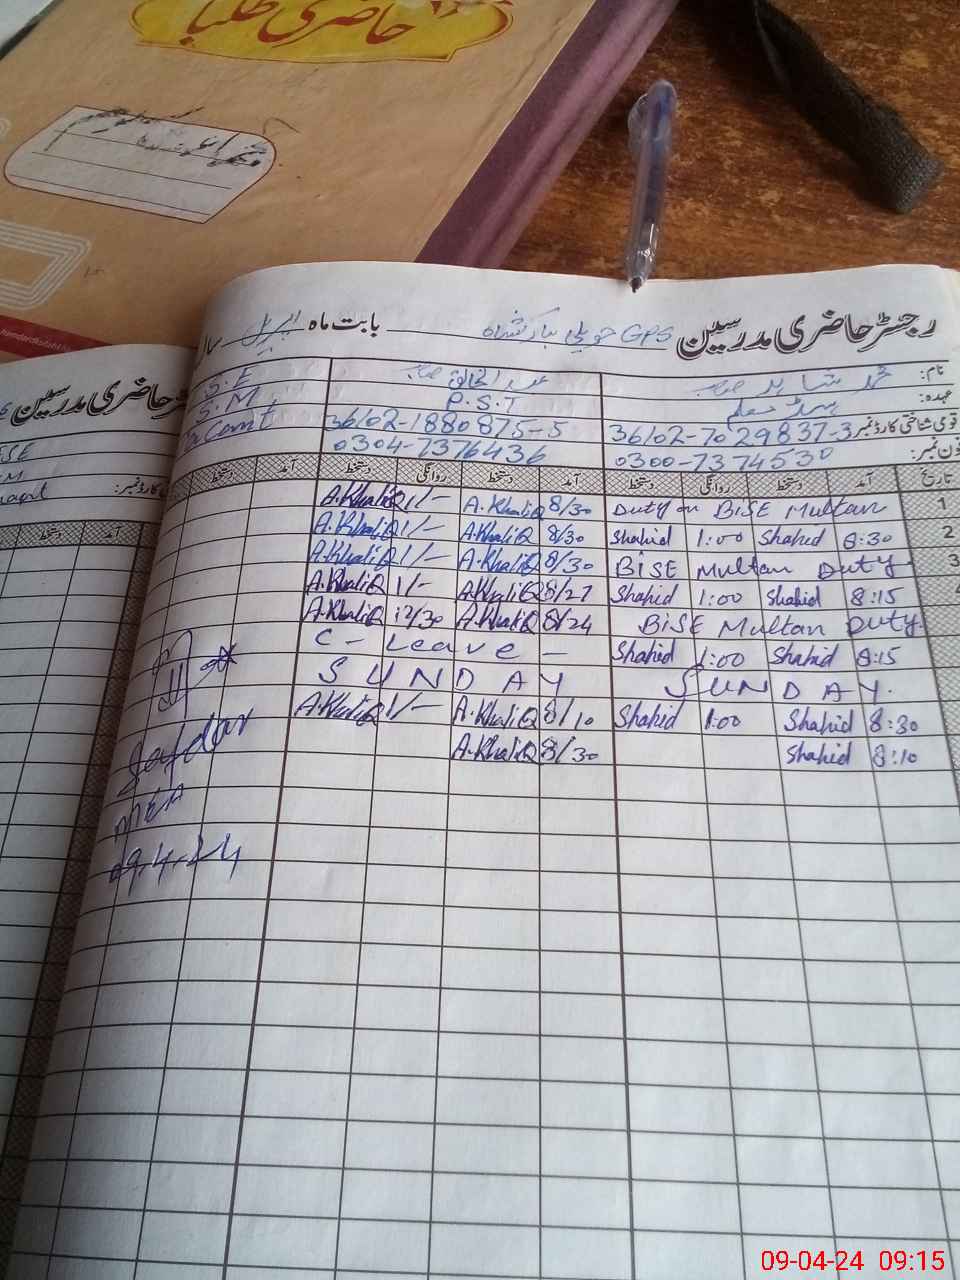 حاضری طلبا
رجسٹر حاضری مدرسین GPS حویلی مبارکشاہ بابت ماہ اپریل سال
نام: محمد شاہد صاحب عبدالخالق صاحب S.E
عہدہ: ہیڈ معلم P.S.T S.M
قومی شناختی کارڈ نمبر 36102-7029837-3 36102-1880875-5
فون نمبر: 0300-7374530 0304-7376436
تاریخ آمد دستخط روانگی دستخط آمد دستخط روانگی دستخط آمد دستخط
A.KhaliQ 1/- A.KhaliQ 8/30 Duty on BISE Multan 1
A.KhaliQ 1/- A.KhaliQ 8/30 Shahid 1:00 Shahid 8:30 2
A.KhaliQ 1/- A.KhaliQ 8/30 BISE Multan Duty 3
A.KhaliQ 1/- A.KhaliQ 8/27 Shahid 1:00 Shahid 8:15
A.KhaliQ 12/30 A.KhaliQ 8/24 BISE Multan Duty
C - Leave - Shahid 1:00 Shahid 8:15
SUNDAY SUNDAY.
A.KhaliQ 1/- A.KhaliQ 8/10 Shahid 1:00 Shahid 8:30
A.KhaliQ 8/30 Shahid 8:10
Safdar
MEA
09.4.24
رجسٹر حاضری مدرسین
کارڈ نمبر:
دستخط آمد
09-04-24 09:15